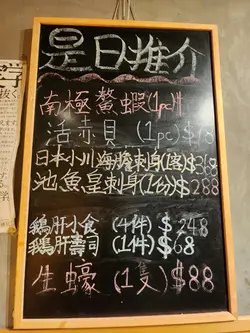 是日推介
南極鰲蝦(1pc)
活赤貝 (1pc)$18
日本小川海膽刺身(客)$368
池魚皇刺身(1份)$288
鵝肝小食 (4件)$248
鵝肝壽司 (1件)$68
生蠔 (1隻)$88